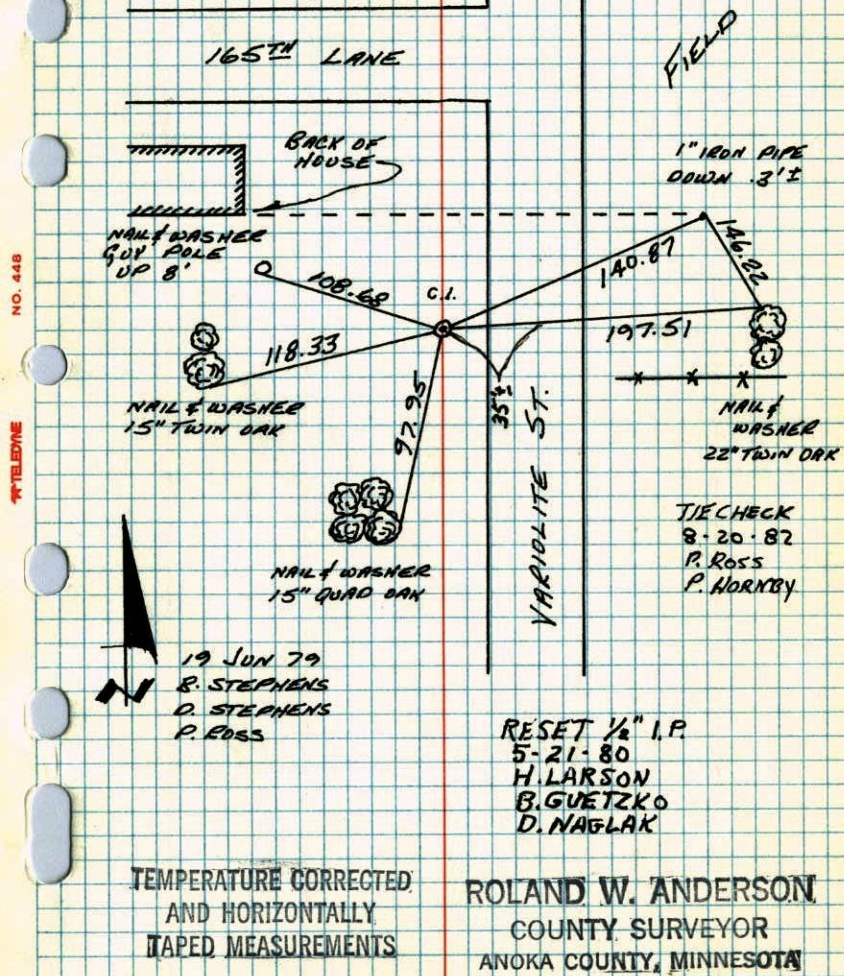 165TH LANE
FIELD
BACK OF
HOUSE
1" IRON PIPE
DOWN .3'±
NAIL & WASHER
GUY POLE
UP 8'
108.68
C.I.
140.87
146.22
118.33
197.51
NAIL & WASHER
15" TWIN OAK
97.95
35'±
VARIOLITE ST.
NAIL &
WASHER
22" TWIN OAK
NO. 448
TELEDYNE
TIE CHECK
8-20-82
P. ROSS
P. HORNBY
NAIL & WASHER
15" QUAD OAK
N
19 JUN 79
B. STEPHENS
D. STEPHENS
P. ROSS
RESET 1/2" I.P.
5-21-80
H. LARSON
B. GUETZKO
D. NAGLAK
TEMPERATURE CORRECTED
AND HORIZONTALLY
TAPED MEASUREMENTS
ROLAND W. ANDERSON
COUNTY SURVEYOR
ANOKA COUNTY, MINNESOTA